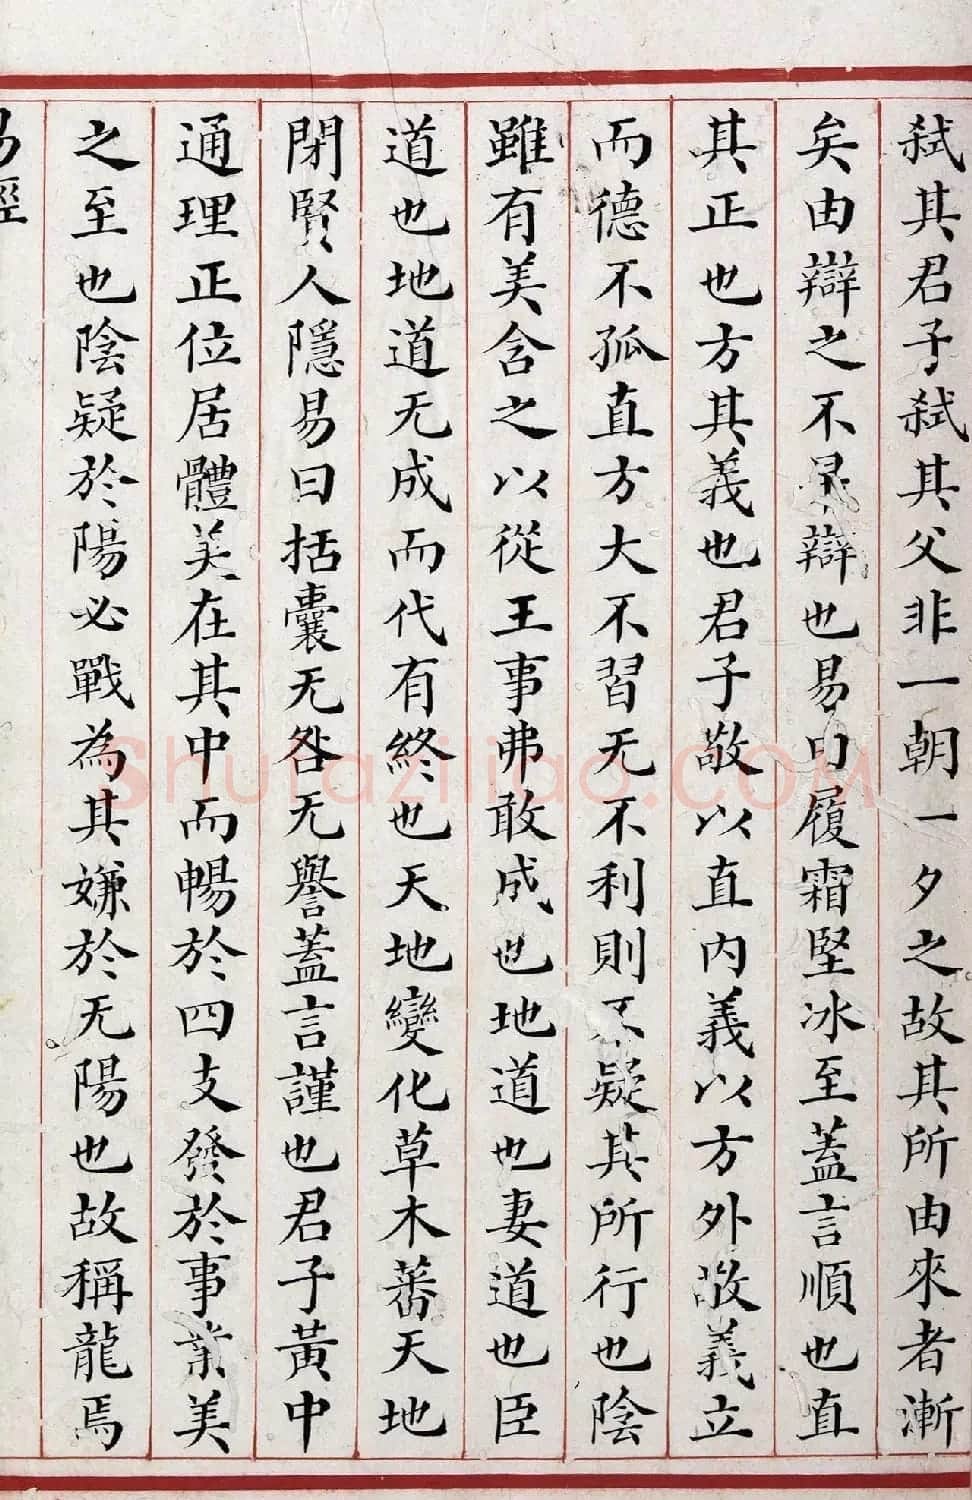 弑其君子弑其父非一朝一夕之故其所由來者漸
矣由辯之不早辯也易曰履霜堅冰至蓋言順也直
其正也方其義也君子敬以直內義以方外敬義立
而德不孤直方大不習无不利則不疑其所行也陰
雖有美含之以從王事弗敢成也地道也妻道也臣
道也地道无成而代有終也天地變化草木蕃天地
閉賢人隱易曰括囊无咎无譽蓋言謹也君子黃中
通理正位居體美在其中而暢於四支發於事業美
之至也陰疑於陽必戰為其嫌於无陽也故稱龍焉
易經
Shufaziliao.COM